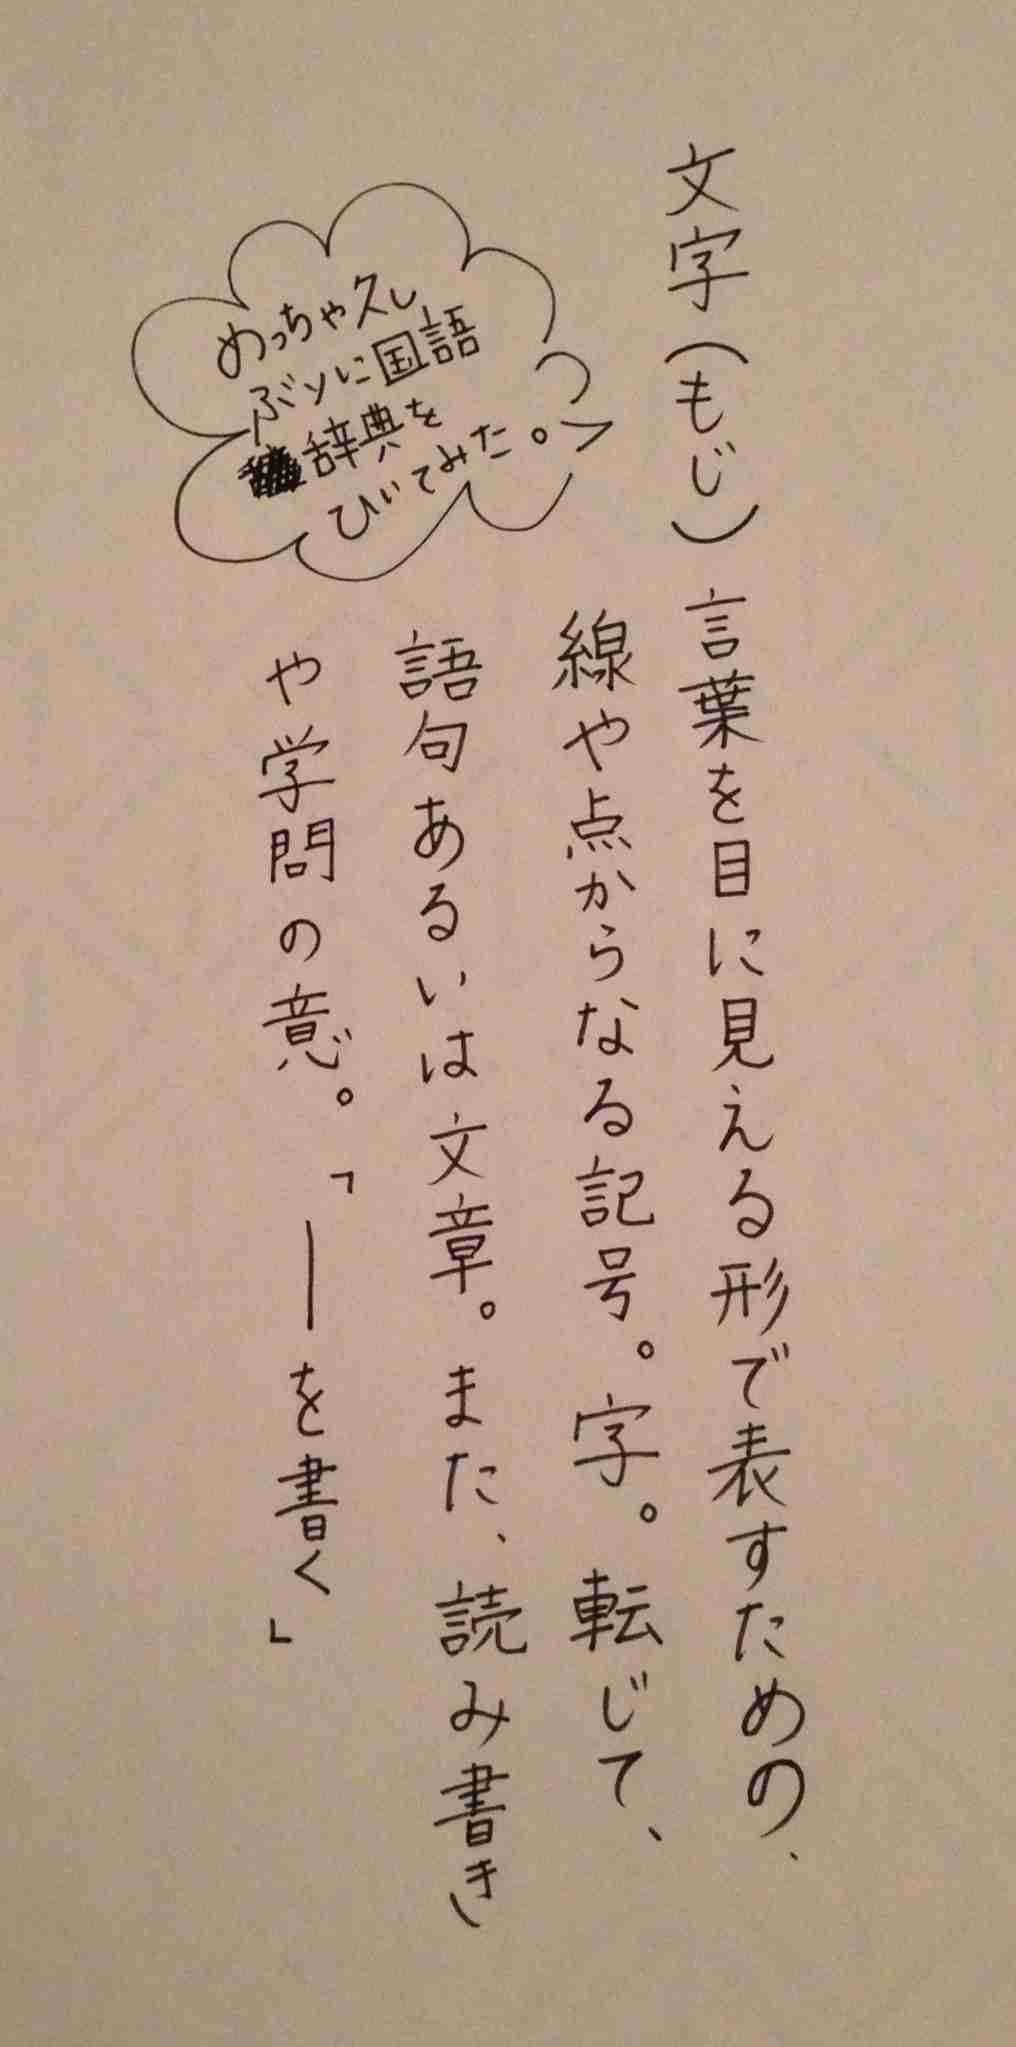 文字（もじ）言葉を目に見える形で表すための、
線や点からなる記号。字。転じて、
語句あるいは文章。また、読み書き
や学問の意。「―を書く」
めっちゃ久し
ぶりに国語
辞典を
ひいてみた。